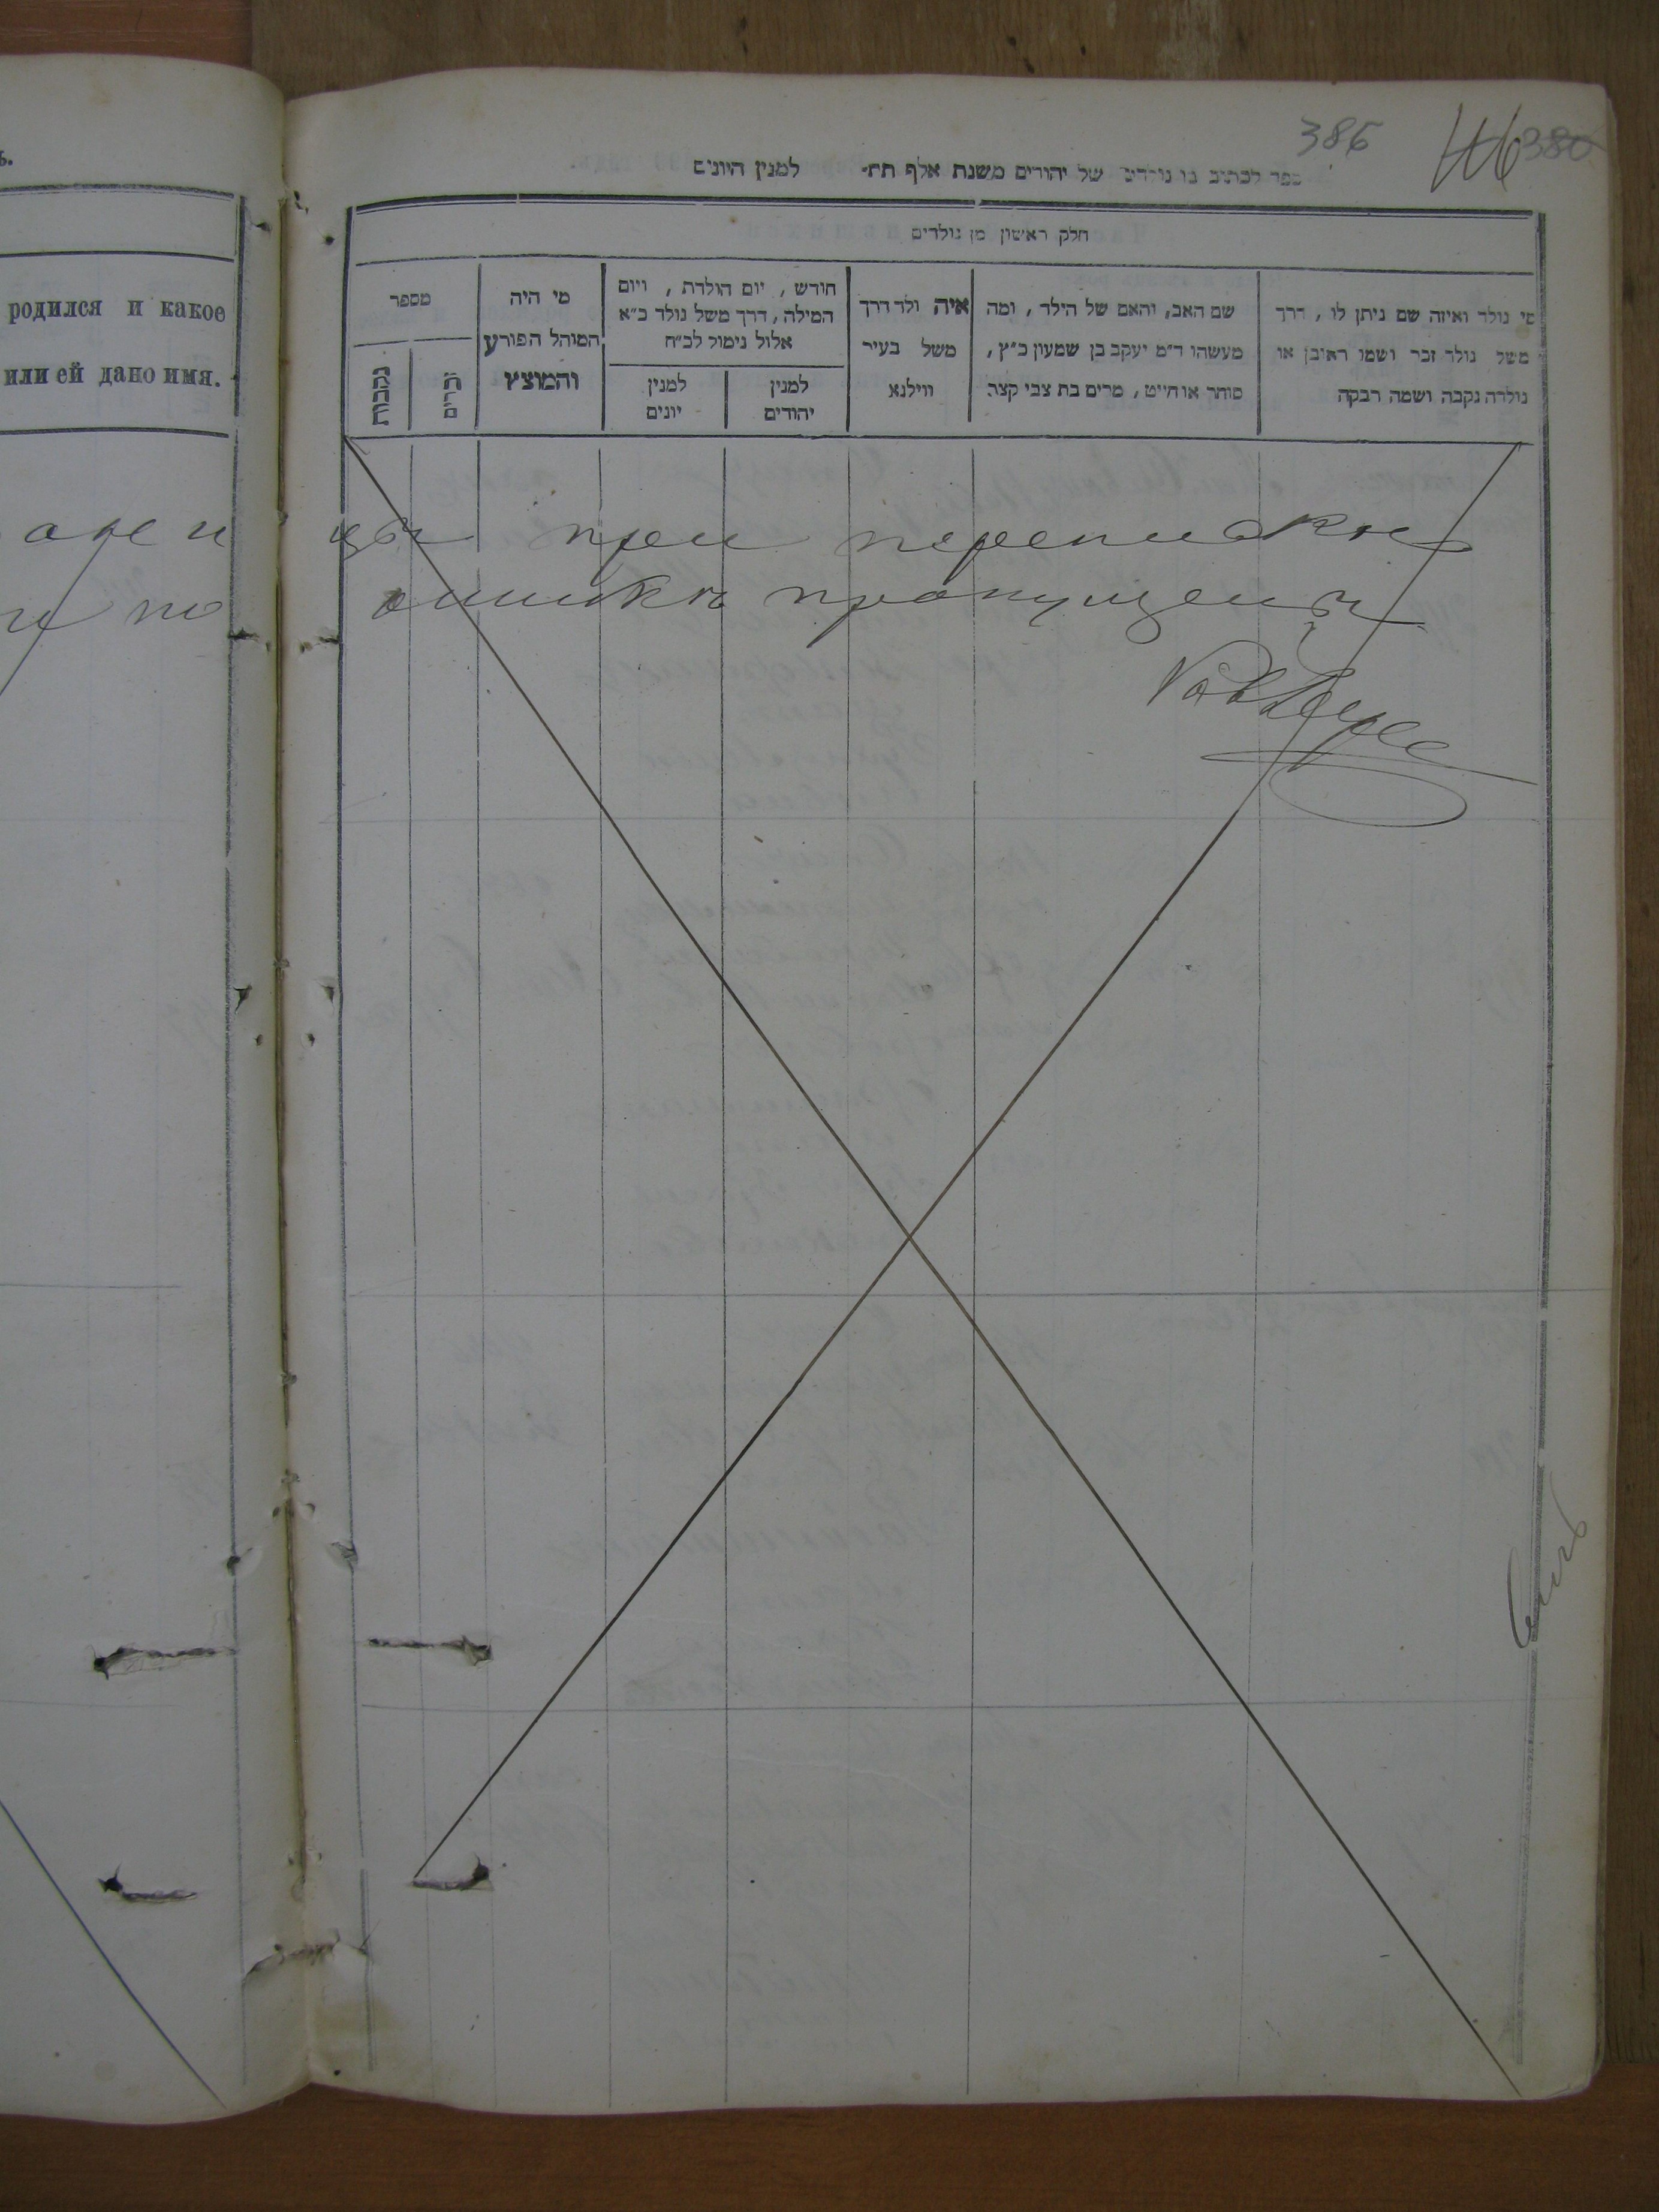 ъ.
родился и какое
или ей дано имя.
386
380
ספר לכתוב בו נולדים של יהודים משנת אלף תת׳ למנין היונים
חלק ראשון מן נולדים
מספר
נקבות
זכרים
מי היה
המוהל הפורע
והמוצץ
חודש, יום הולדת, ויום
המילה, דרך משל נולד כ״א
אלול נימול לכ״ח
למנין
יונים
למנין
יהודים
איה ולד דרך
משל בעיר
ווילנא
שם האב, והאם של הילד, ומה
מעשהו ד״מ יעקב בן שמעון כ״ץ,
סוחר או חייט, מרים בת צבי קצב
מי נולד ואיזה שם ניתן לו, דרך
משל נולד זכר ושמו ראובן או
נולדה נקבה ושמה רבקה
ницы при переписке
и по ошибке пропущены